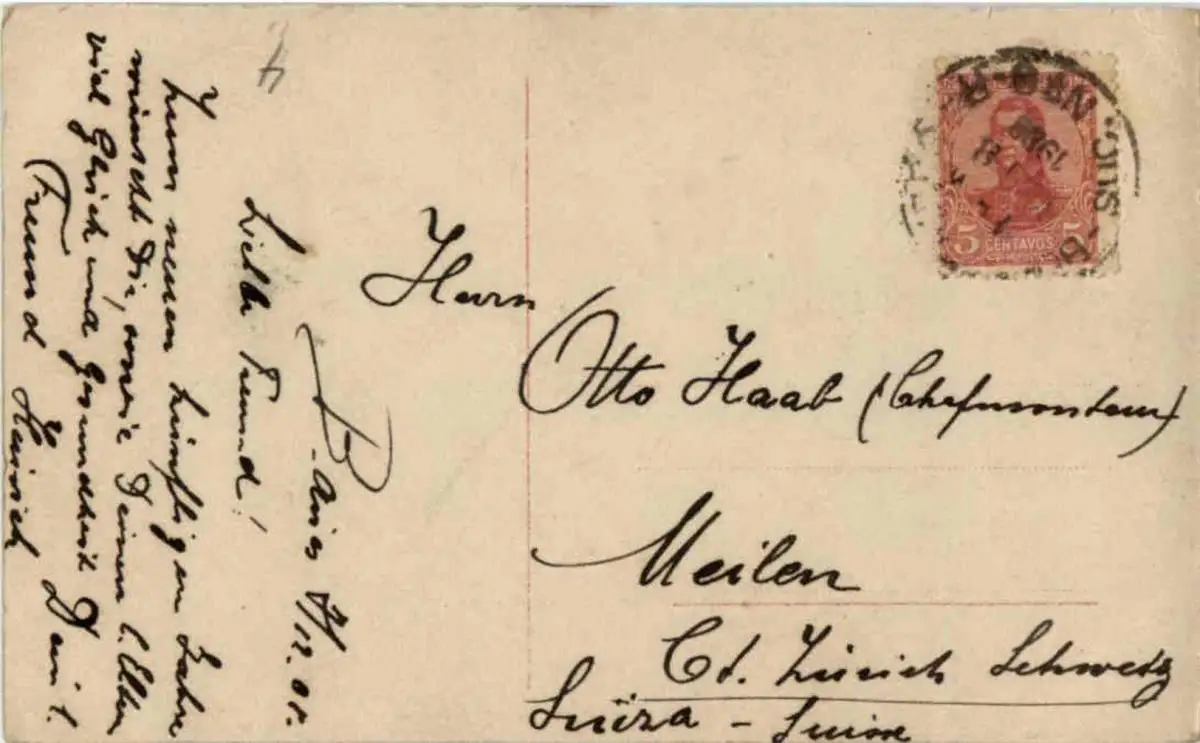 B. Aires 12.08.
Liebe Freund!
Zum neuen künftigen Jahre
wünscht Dir, sowie Deinen l. Eltern
viel Glück und Gesundheit Dein l.
Freund Heinrich
4
Herrn
Otto Haab (Chefmonteur)
Meilen
Ct. Zürich Schweiz
Suiza - Suisse
5 CENTAVOS 5
SUC.